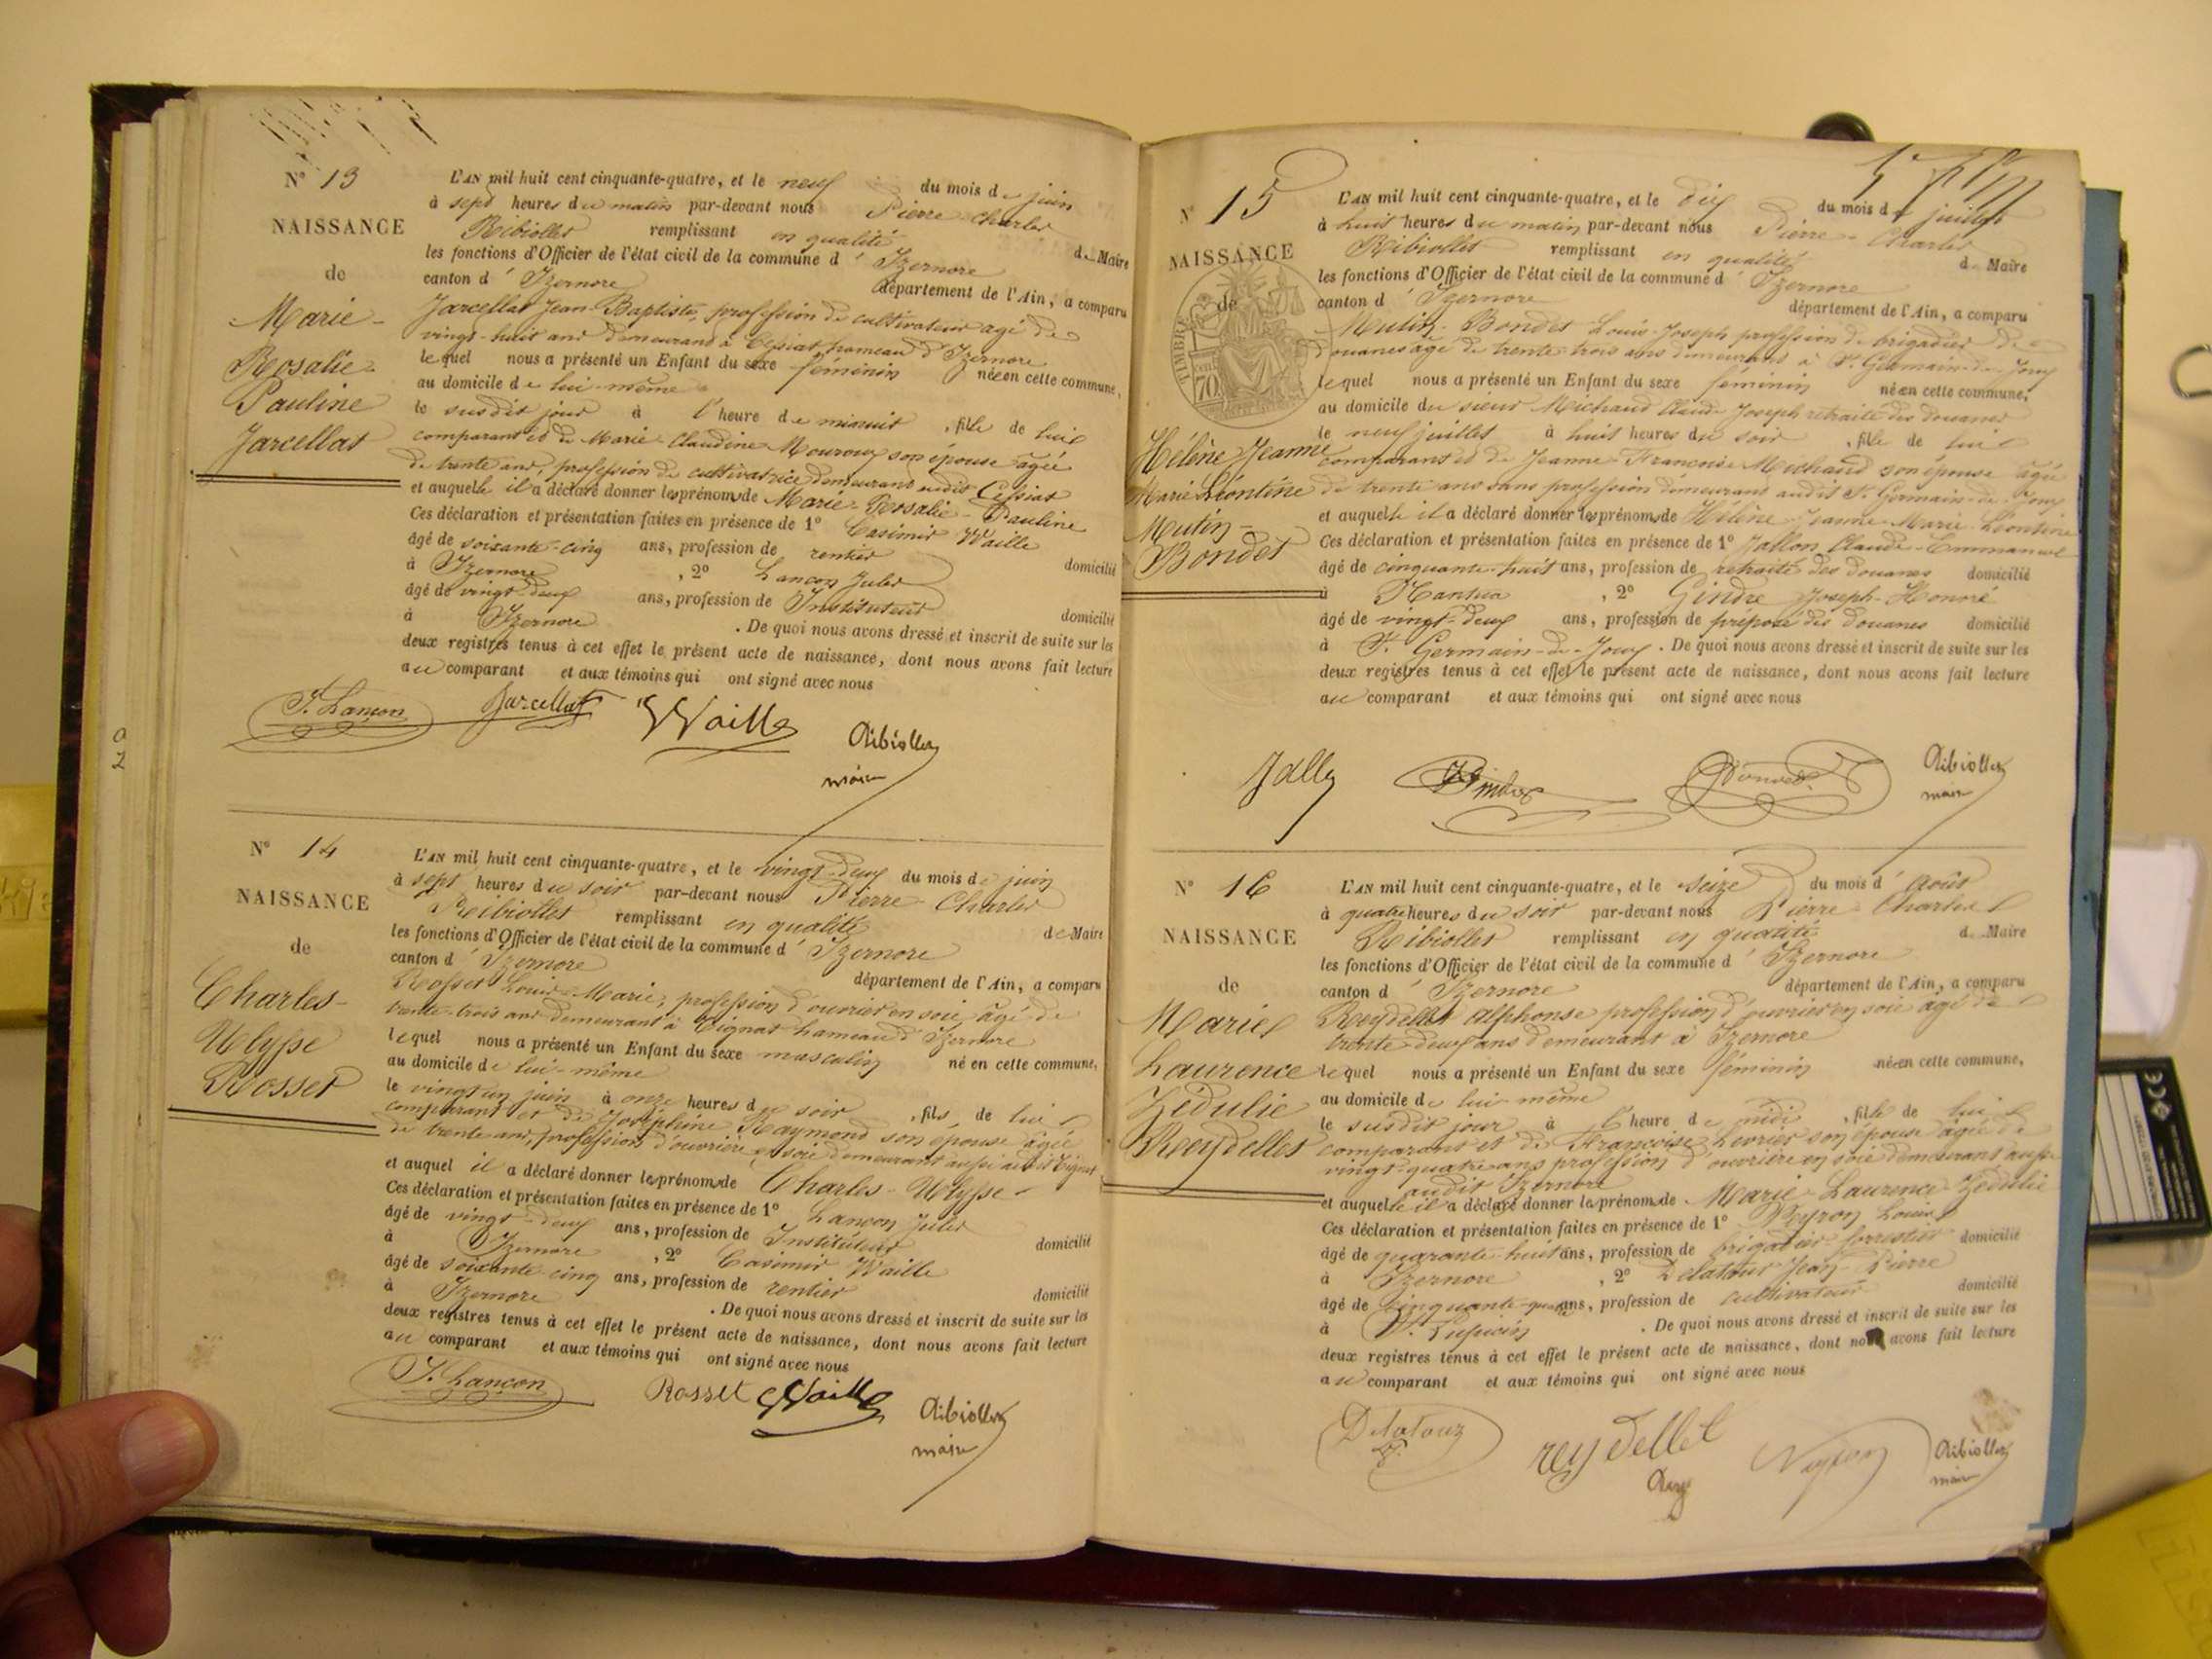 N° 13
NAISSANCE
de
Marie-
Rosalie-
Pauline
Jarcellat
L'AN mil huit cent cinquante-quatre, et le neuf du mois de juin
à sept heures du matin par-devant nous Pierre Charles
Ribiollet remplissant en qualité de Maire
les fonctions d'Officier de l'état civil de la commune d' Izernore
canton d' Izernore département de l'Ain, a comparu
Jarcellat Jean-Baptiste, profession de cultivateur agé de
vingt-huit ans demeurant à Cessiat hameau d'Izernore
lequel nous a présenté un Enfant du sexe féminin née en cette commune,
au domicile de lui-même
le susdit jour à l'heure de minuit , fille de lui
comparant et de Marie Claudine Mouroux son épouse agée
de trente ans, profession de cultivatrice demeurant audit Cessiat
et auquelle il a déclaré donner les prénoms de Marie-Rosalie-Pauline
Ces déclaration et présentation faites en présence de 1° Casimir Waille
âgé de soixante-cinq ans, profession de rentier domicilié
à Izernore , 2° Lançon Jules
âgé de vingt-deux ans, profession de Instituteur domicilié
à Izernore . De quoi nous avons dressé et inscrit de suite sur les
deux registres tenus à cet effet le présent acte de naissance, dont nous avons fait lecture
au comparant et aux témoins qui ont signé avec nous
J. Lançon Jarcellat Waille Ribiollet
maire
N° 14
NAISSANCE
de
Charles-
Ulysse
Rosset
L'AN mil huit cent cinquante-quatre, et le vingt-deux du mois de juin
à sept heures du soir par-devant nous Pierre Charles
Ribiollet remplissant en qualité de Maire
les fonctions d'Officier de l'état civil de la commune d' Izernore
canton d' Izernore département de l'Ain, a comparu
Rosset Louis-Marie, profession d'ouvrier en soie, âgé de
trente-trois ans demeurant à Tignat hameau d'Izernore
lequel nous a présenté un Enfant du sexe masculin né en cette commune,
au domicile de lui-même
le vingt un juin à onze heures du soir , fils de lui
comparant et de Joséphine Raymond son épouse agée
de trente ans, profession d'ouvrière en soie demeurant aussi audit Tignat
et auquel il a déclaré donner les prénoms de Charles-Ulysse
Ces déclaration et présentation faites en présence de 1° Lançon Jules
âgé de vingt-deux ans, profession de Instituteur domicilié
à Izernore , 2° Casimir Waille
âgé de soixante-cinq ans, profession de rentier domicilié
à Izernore . De quoi nous avons dressé et inscrit de suite sur les
deux registres tenus à cet effet le présent acte de naissance, dont nous avons fait lecture
au comparant et aux témoins qui ont signé avec nous
J. Lançon Rosset Waille Ribiollet
maire
N° 15
NAISSANCE
de
TIMBRE
70
Hélène Jeanne
Marie Léontine
Mutin-
Bondet
L'AN mil huit cent cinquante-quatre, et le dix du mois de juillet
à huit heures du matin par-devant nous Pierre-Charles
Ribiollet remplissant en qualité de Maire
les fonctions d'Officier de l'état civil de la commune d' Izernore
canton d' Izernore département de l'Ain, a comparu
Mutin-Bondet Louis-Joseph profession de brigadier de
douanes âgé de trente-trois ans demeurant à St Germain-de-Joux
lequel nous a présenté un Enfant du sexe féminin née en cette commune,
au domicile du sieur Michaud Claude Joseph retraité des douanes
le neuf juillet à huit heures du soir , fille de lui
comparant et de Jeanne-Françoise Michaud son épouse agée
de trente ans sans profession demeurant audit St Germain-de-Joux
et auquelle il a déclaré donner les prénoms de Hélène-Jeanne-Marie-Léontine
Ces déclaration et présentation faites en présence de 1° Claude-Emmanuel
âgé de cinquante-huit ans, profession de retraité des douanes domicilié
à Nantua , 2° Gindre Joseph-Honoré
âgé de vingt-deux ans, profession de préposé des douanes domicilié
à St Germain-de-Joux . De quoi nous avons dressé et inscrit de suite sur les
deux registres tenus à cet effet le présent acte de naissance, dont nous avons fait lecture
au comparant et aux témoins qui ont signé avec nous
Gindre Bondet Ribiollet
maire
N° 16
NAISSANCE
de
Marie
Laurence
Zédulie
Reydellet
L'AN mil huit cent cinquante-quatre, et le seize du mois d' août
à quatre heures du soir par-devant nous Pierre Charles
Ribiollet remplissant en qualité de Maire
les fonctions d'Officier de l'état civil de la commune d' Izernore
canton d' Izernore département de l'Ain, a comparu
Reydellet alphonse profession d'ouvrier en soie âgé de
trente-deux ans demeurant à Izernore
lequel nous a présenté un Enfant du sexe féminin née en cette commune,
au domicile de lui-même
le susdit jour à l'heure de midi , fille de lui
comparant et de Françoise Levrier son épouse agée de
vingt-quatre ans profession d'ouvrière en soie demeurant aussi
audit Izernore
et auquelle il a déclaré donner les prénoms de Marie-Laurence-Zédulie
Ces déclaration et présentation faites en présence de 1° Louis
âgé de quarante-huit ans, profession de brigadier forestier domicilié
à Izernore , 2° Delatour Jean-Pierre
âgé de cinquante-quatre ans, profession de cultivateur domicilié
à St Lupicin . De quoi nous avons dressé et inscrit de suite sur les
deux registres tenus à cet effet le présent acte de naissance, dont nous avons fait lecture
au comparant et aux témoins qui ont signé avec nous
Delatour reydellet Ribiollet
maire